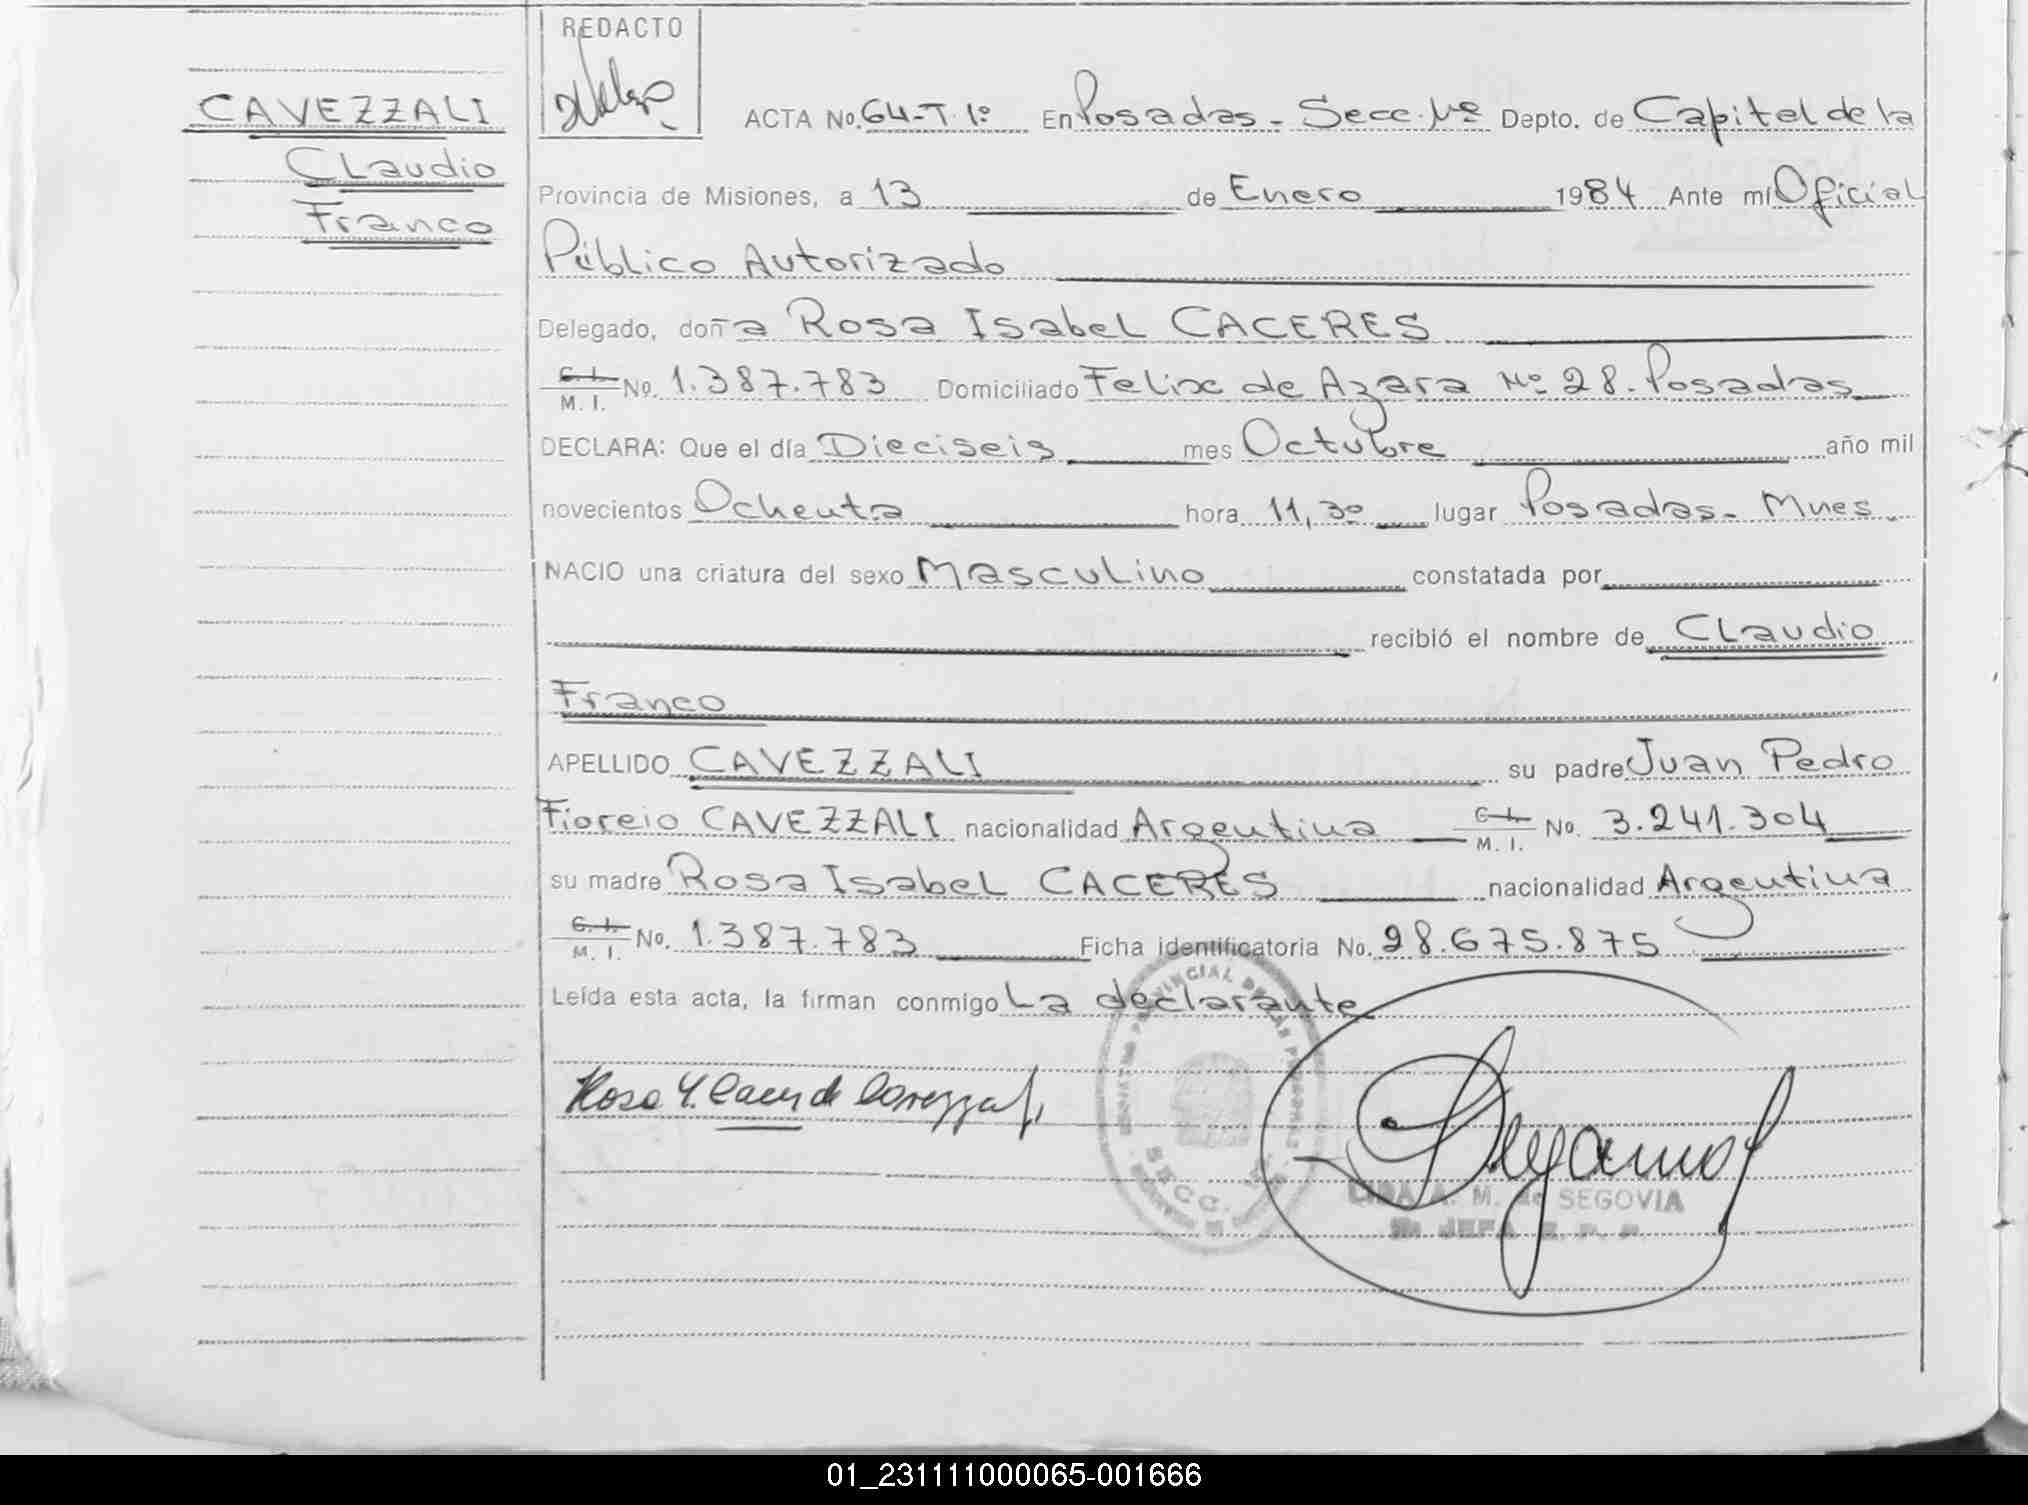 REDACTO
CAVEZZALI
Claudio
Franco
ACTA No. 64-T. 1º En Posadas - Secc. 1ª Depto. de Capital de la
Provincia de Misiones, a 13 de Enero 1984 Ante mí Oficial
Público Autorizado
Delegado, doña Rosa Isabel CACERES
C. I. M. I. No. 1.387.783 Domiciliado Felix de Azara Nº 28. Posadas
DECLARA: Que el día Dieciseis mes Octubre año mil
novecientos Ochenta hora 11,30 lugar Posadas - Mnes
NACIO una criatura del sexo Masculino constatada por
recibió el nombre de Claudio
Franco
APELLIDO CAVEZZALI su padre Juan Pedro
Fioreio CAVEZZALI nacionalidad Argentina C. I. M. I. No. 3.241.304
su madre Rosa Isabel CACERES nacionalidad Argentina
C. I. M. I. No. 1.387.783 Ficha identificatoria No. 28.675.875
Leída esta acta, la firman conmigo La declarante
Rosa Y. Caceres de Cavezzali
SECC.
A. M. de SEGOVIA
JEFA
01_231111000065-001666